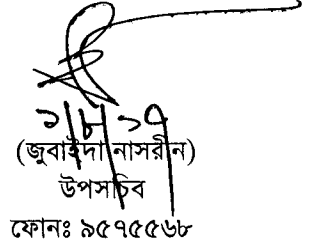 ১/৮/১৭
(জুবাইদা নাসরীন)
উপসচিব
ফোনঃ ৯৫৭৫৫৬৮